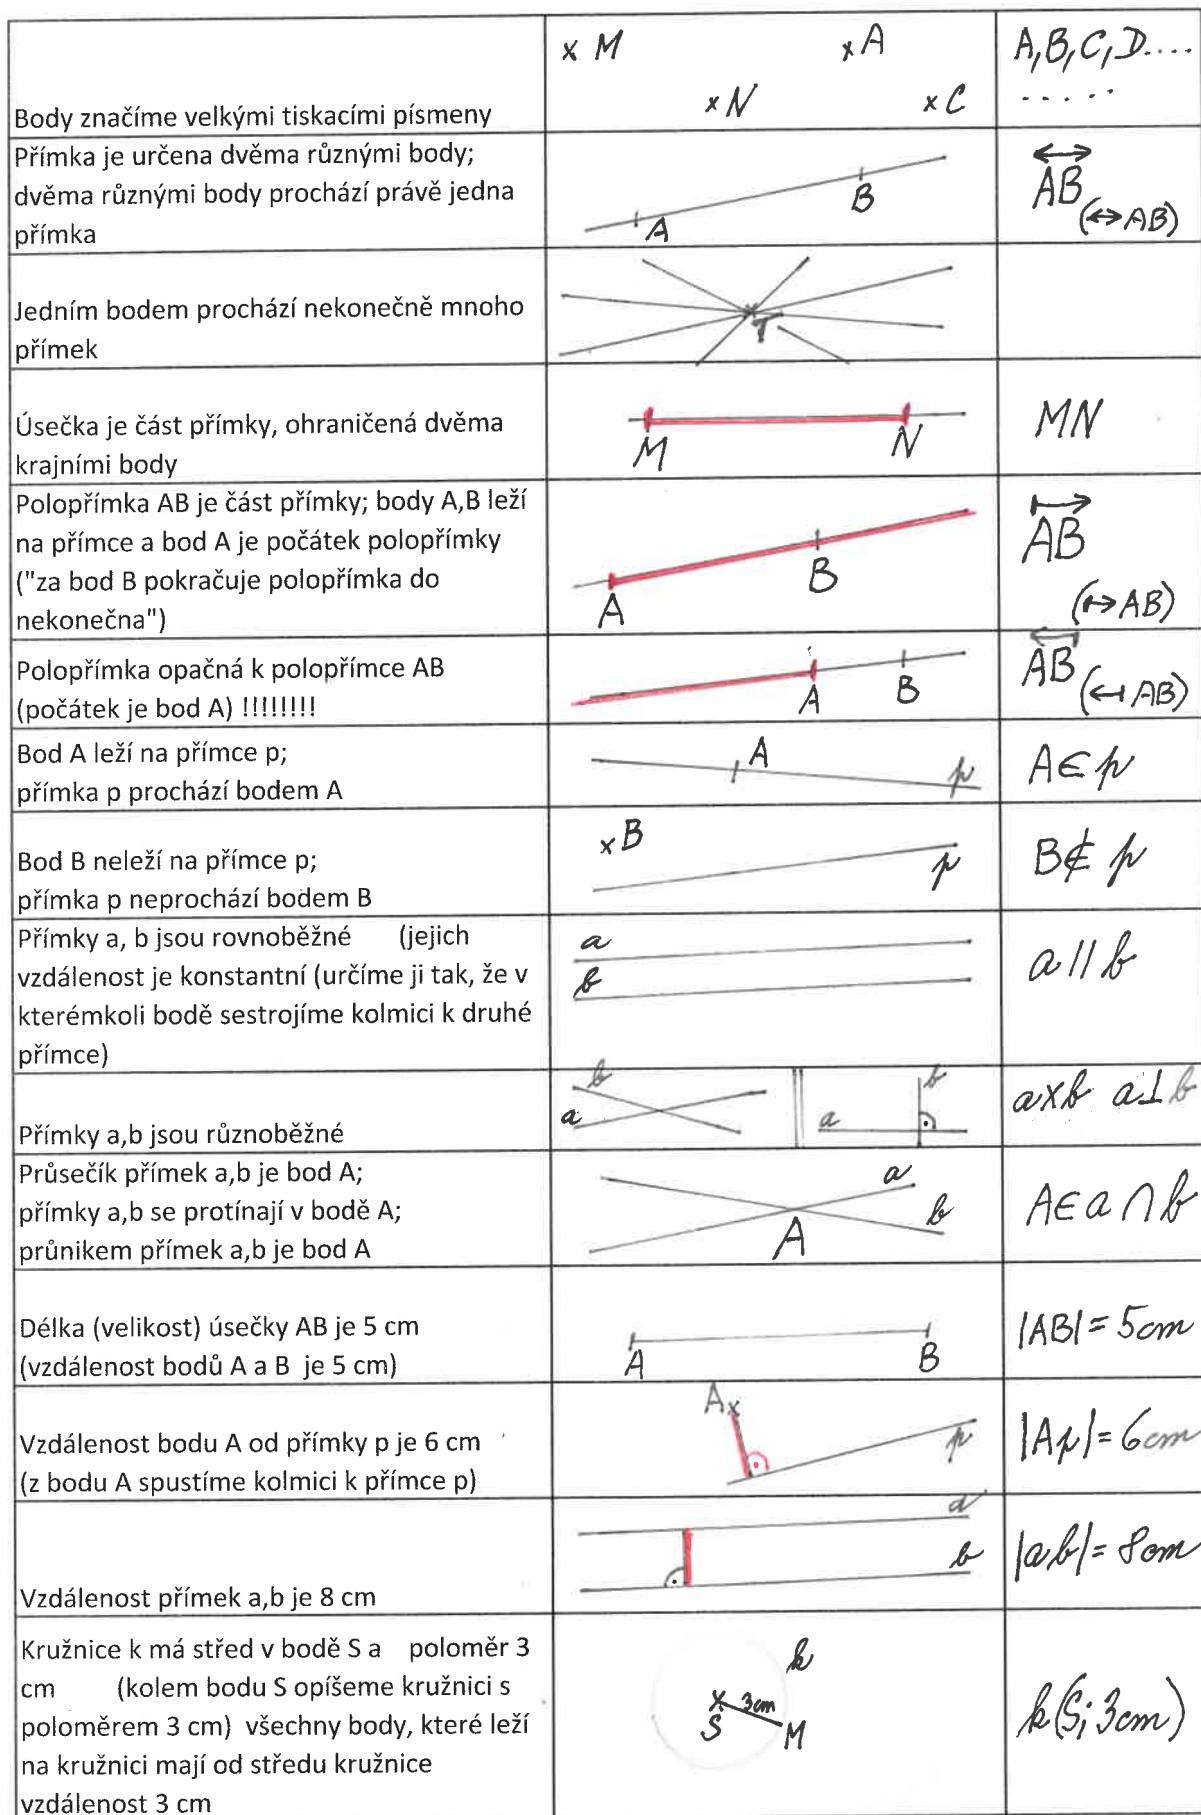 x M x A A, B, C, D....
x N x C .....
Body značíme velkými tiskacími písmeny
Přímka je určena dvěma různými body;
dvěma různými body prochází právě jedna
přímka
A B
↔AB
(↔AB)
Jedním bodem prochází nekonečně mnoho
přímek
T
Úsečka je část přímky, ohraničená dvěma
krajními body
M N
MN
Polopřímka AB je část přímky; body A,B leží
na přímce a bod A je počátek polopřímky
("za bod B pokračuje polopřímka do
nekonečna")
A B
↦AB
(↦AB)
Polopřímka opačná k polopřímce AB
(počátek je bod A) !!!!!!!!
A B
↤AB
(↤AB)
Bod A leží na přímce p;
přímka p prochází bodem A
A p
A∈p
Bod B neleží na přímce p;
přímka p neprochází bodem B
x B p
B∉p
Přímky a, b jsou rovnoběžné (jejich
vzdálenost je konstantní (určíme ji tak, že v
kterémkoli bodě sestrojíme kolmici k druhé
přímce)
a
b
a || b
Přímky a,b jsou různoběžné
b
a
b
a
a×b a⊥b
Průsečík přímek a,b je bod A;
přímky a,b se protínají v bodě A;
průnikem přímek a,b je bod A
a
b
A
A∈a∩b
Délka (velikost) úsečky AB je 5 cm
(vzdálenost bodů A a B je 5 cm)
A B
|AB|= 5cm
Vzdálenost bodu A od přímky p je 6 cm
(z bodu A spustíme kolmici k přímce p)
A x
p
|Ap|= 6cm
Vzdálenost přímek a,b je 8 cm
a
b
|ab|= 8cm
Kružnice k má střed v bodě S a poloměr 3
cm (kolem bodu S opíšeme kružnici s
poloměrem 3 cm) všechny body, které leží
na kružnici mají od středu kružnice
vzdálenost 3 cm
k
x 3cm
S M
k(S; 3cm)